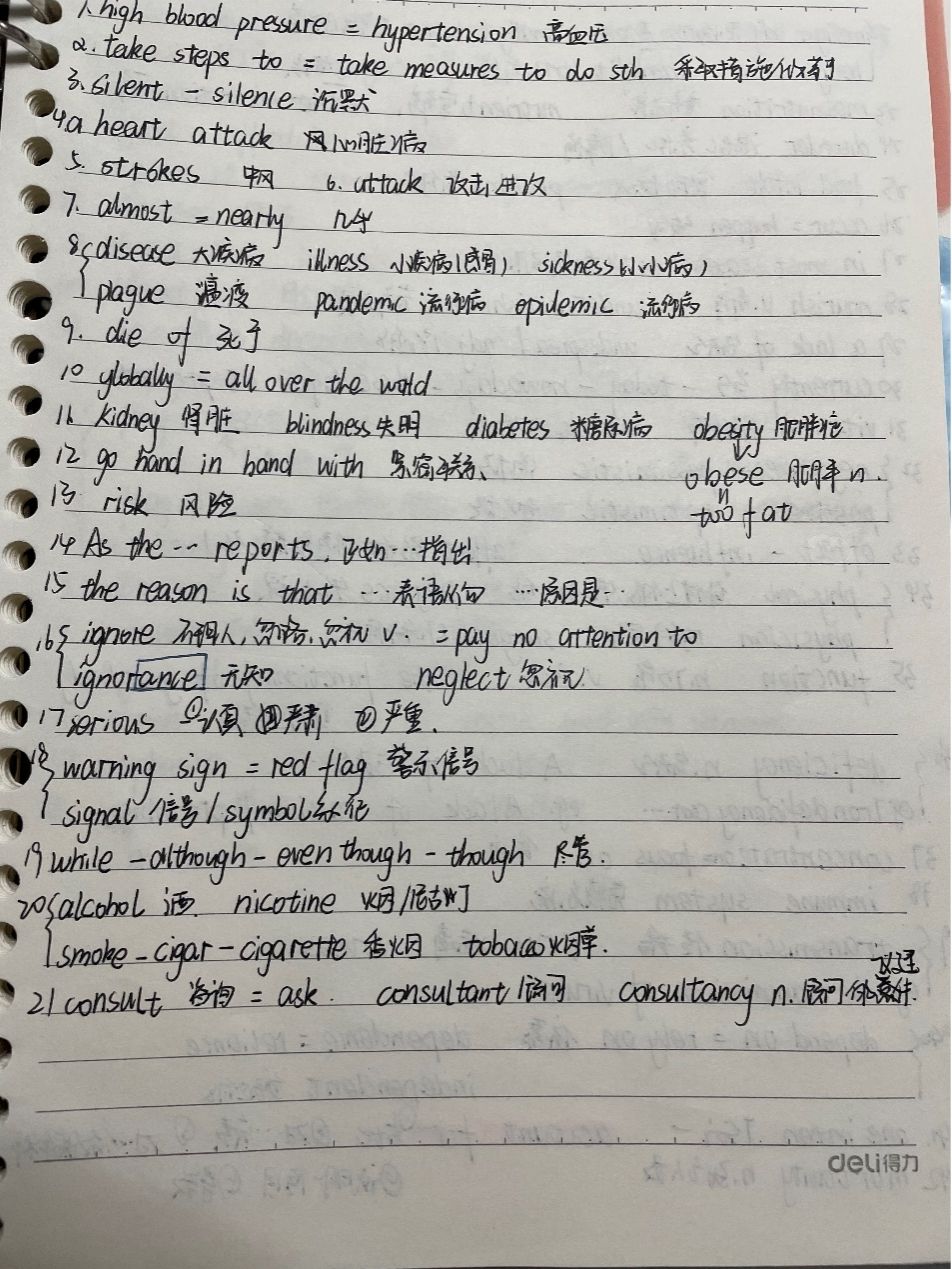 1. high blood pressure = hypertension 高血压
2. take steps to = take measures to do sth 采取措施做某事
3. silent - silence 沉默
4 a heart attack 心脏病
5. strokes 中风 6. attack 攻击,进攻
7. almost = nearly 几乎
8 disease 大疾病 illness 小疾病(感冒) sickness (小小病)
plague 瘟疫 pandemic 流行病 epidemic 流行病
9. die of 死于
10 globally = all over the world
11. kidney 肾脏 blindness 失明 diabetes 糖尿病 obesity 肥胖症
12 go hand in hand with 紧密联系、 obese 肥胖 n.
13 risk 风险 too fat
14 As the … reports, 正如…指出
15 the reason is that … 表语从句 …原因是…
16 ignore 不理人,忽略,忽视 v. = pay no attention to
ignorance 无知 neglect 忽视
17 serious ①认真 ②严肃 ③严重.
18 warning sign = red flag 警示信号
signal 信号 / symbol 象征
19 while - although - even though - though 尽管.
20 alcohol 酒. nicotine 烟/尼古丁
smoke - cigar - cigarette 香烟 tobacco 烟草.
21 consult 咨询 = ask. consultant 顾问 consultancy n. 顾问
deli得力